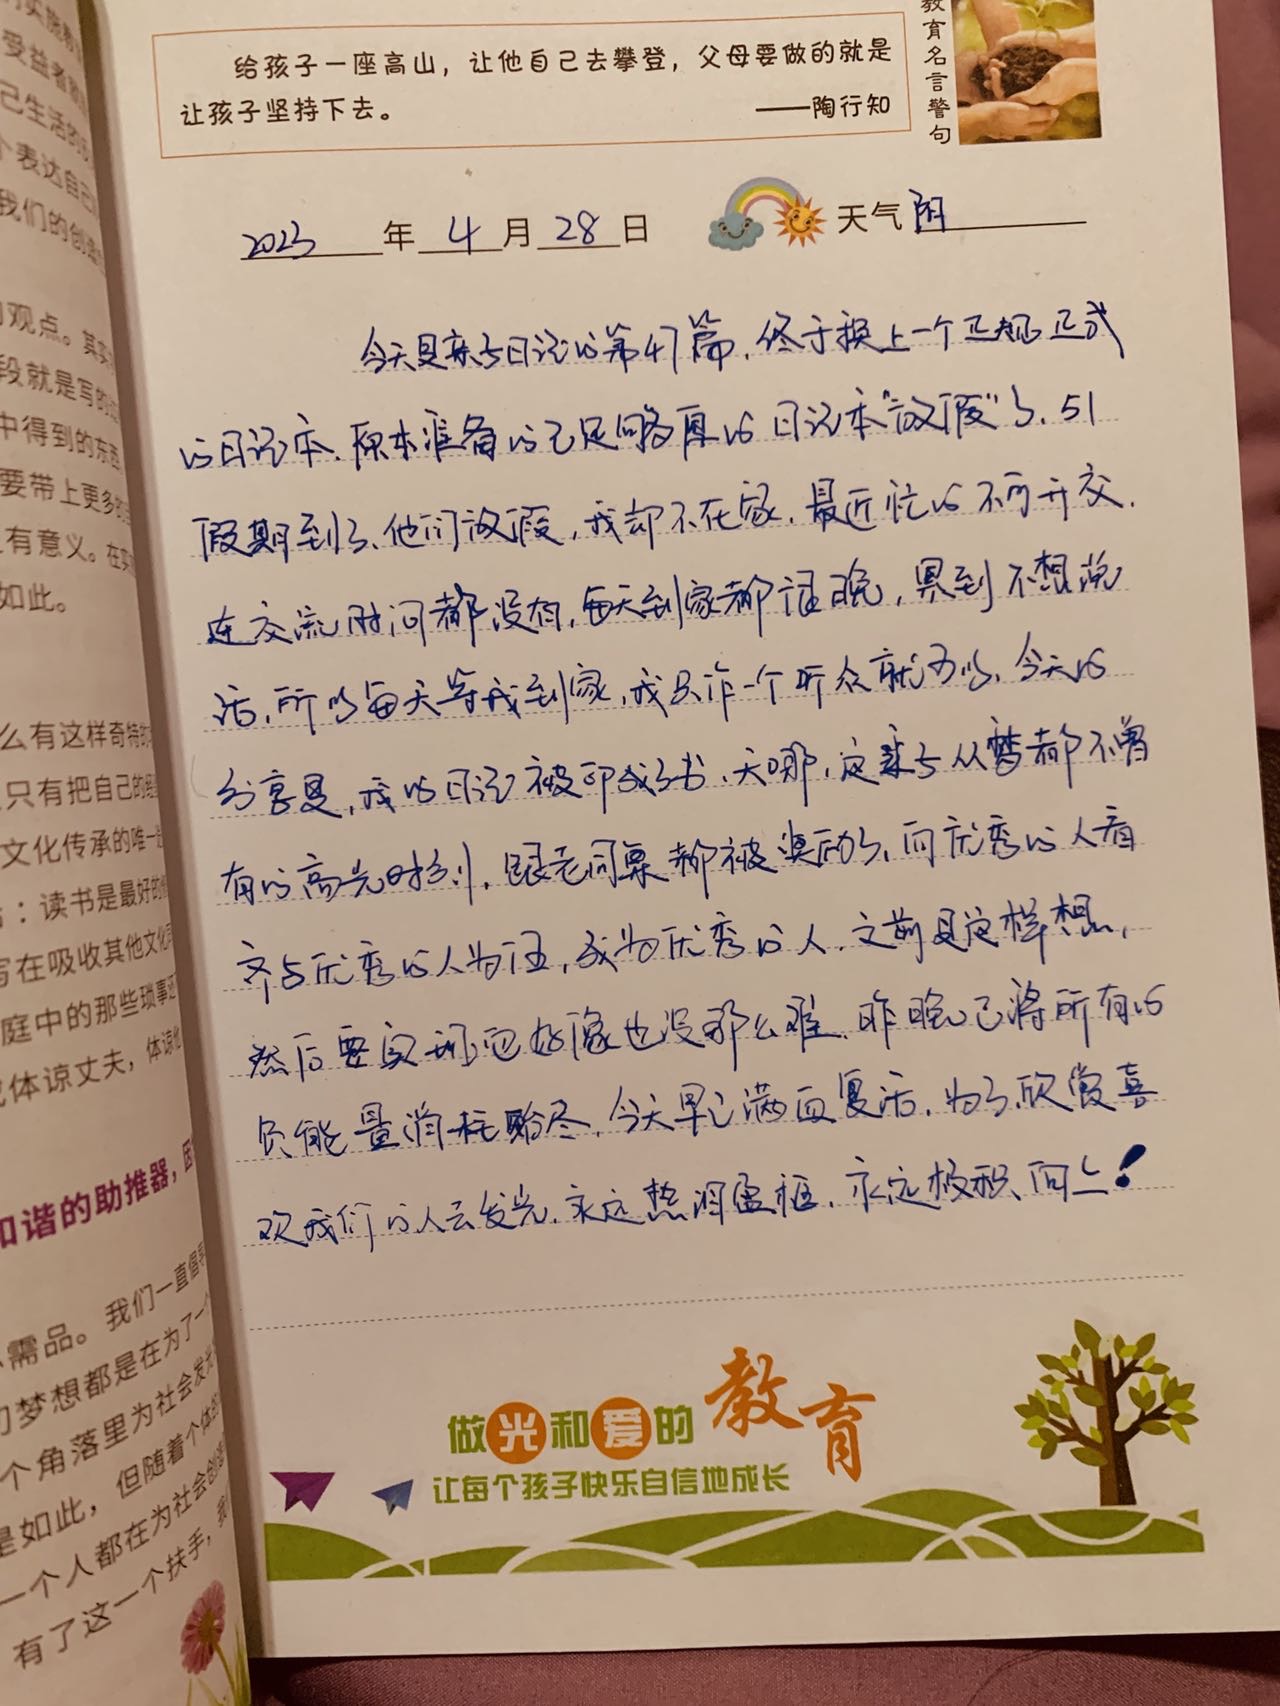 受益者
己生活的
个表达自己
我们的创造
观点。其实
段就是写的
中得到的东西
要带上更多的
有意义。在实
如此。
么有这样奇特的
只有把自己的经
文化传承的唯一
：读书是最好的
写在吸收其他文化
庭中的那些琐事
体谅丈夫，体谅他
和谐的助推器，因
需品。我们一直倡导
梦想都是在为了一个
个角落里为社会发光
是如此，但随着个体的
一个人都在为社会创造
有了这一个扶手，我
给孩子一座高山，让他自己去攀登，父母要做的就是
让孩子坚持下去。
——陶行知
教育名言警句
2023年4月28日 天气阴
今天是亲子日记的第47篇，终于换上一个正规正式
的日记本，原本准备的已足够厚的日记本“放假”了，51
假期到了，他们放假，我却不在家，最近忙的不可开交，
连交流时间都没有，每天到家都很晚，累到不想说
话，所以每天等我到家，我只作一个听众就可以，今天的
分享是，我的日记被印成了书，天哪，这亲子从梦都不曾
有的高光时刻，跟老同桌都被奖励了，向优秀的人看
齐与优秀的人为伍，成为优秀的人，之前是这样想，
然后要实现它好像也没那么难，昨晚已将所有的
负能量消耗殆尽，今天早已满血复活，为了欣赏喜
欢我们的人去发光，永远热泪盈眶，永远积极向上！
做光和爱的教育
让每个孩子快乐自信地成长